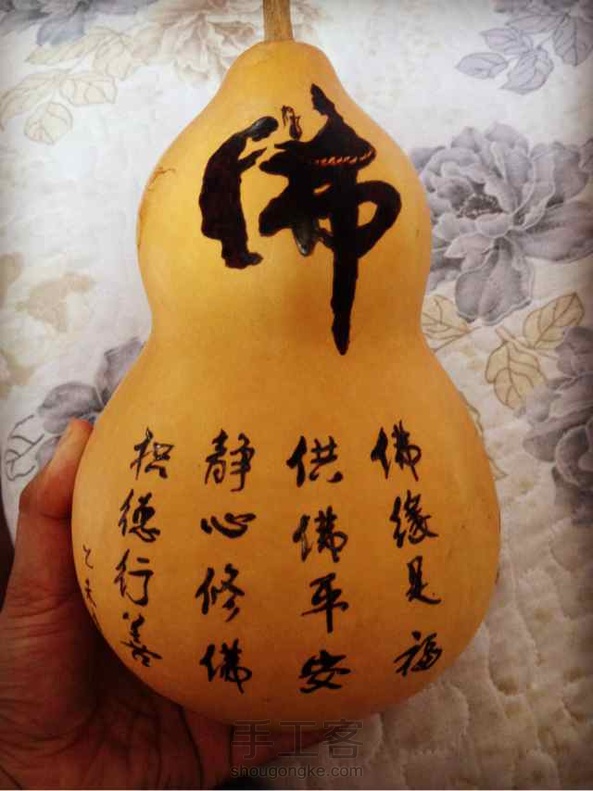 佛
佛缘是福
供佛平安
静心修佛
积德行善
手工客
shougongke.com